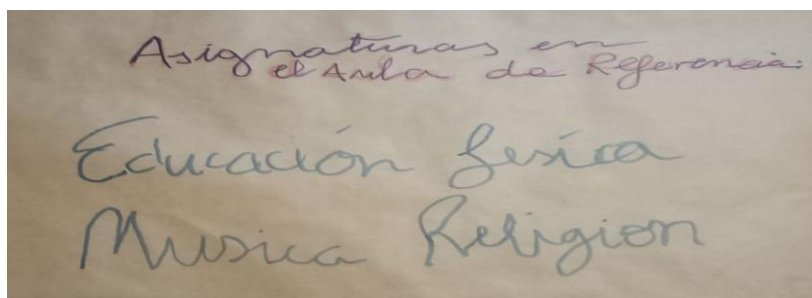 Asignaturas en
el Aula de Referencia:
Educación fesíca
Musica Religion